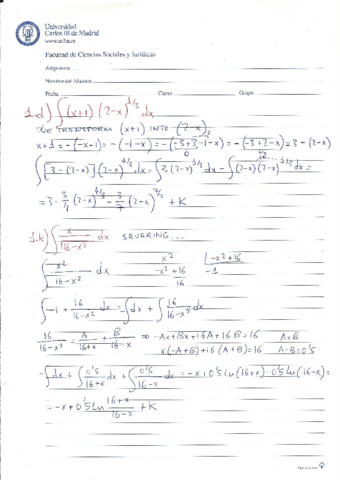 Universidad
Carlos III de Madrid
www.uc3m.es
Facultad de Ciencias Sociales y Jurídicas
Asignatura
Nombre del Alumno
Fecha Curso Grupo
1.d) ∫(x+1) (2-x)^1/3 dx
WE TRANSFORM (x+1) INTO (2-x)
x+1 = -(-x-1) = -(-1-x) = -(-3+3-1-x) = -(-3+2-x) = 3-(2-x)
0
∫[3-(2-x)] (2-x)^1/3 dx = ∫3(2-x)^1/3 dx - ∫(2-x)(2-x)^1/3 dx =
= 3·3/4 (2-x)^4/3 - 3/7 (2-x)^7/3 + K
1.k) ∫ x/16-x² dx SQUARING...
∫ x²/16-x² dx x² |-x²+16
-x²+16 -1
16
∫-1 + ∫16/16-x² dx = -∫dx + ∫16/16-x² dx
16/16-x² = A/16+x + B/16-x ⇒ -Ax+Bx+16A+16B=16 A=B
x(-A+B)+16(A+B)=16 A-B=0'5
-∫dx + ∫0'5/16+x dx + ∫0'5/16-x dx = -x+0'5 ln(16+x)-0'5 ln(16-x) =
= -x+0'5 ln 16+x/16-x + K